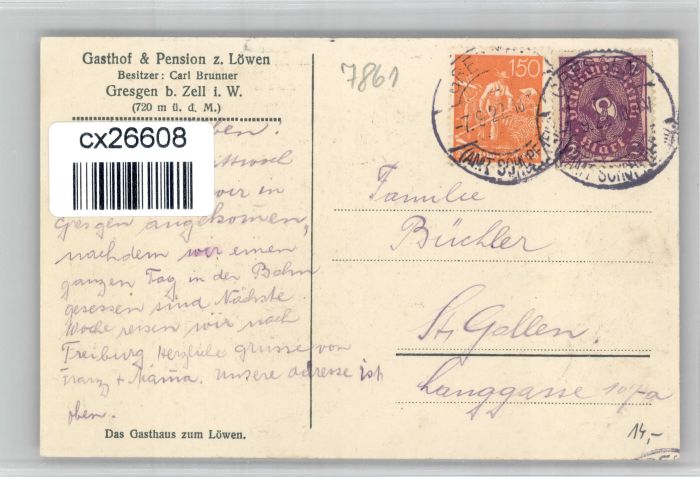 Gasthof & Pension z. Löwen
Besitzer: Carl Brunner
Gresgen b. Zell i. W.
(720 m ü. d. M.)
7861
cx26608
150
GRESGEN
(AMT SCHOPF
Deutsches Reich
Mark
ben.
ittwoch
wir in
Gresgen angekomen,
nachdem wir einen
ganzen Tag in der Bahn
gesessen sind Nächste
Woche reisen wir nach
Freiburg Herzliche grüsse von
Franz + Mama. unsere adresse ist
oben.
Familie
Büchler
St. Gallen.
Langgasse
14,-
Das Gasthaus zum Löwen.